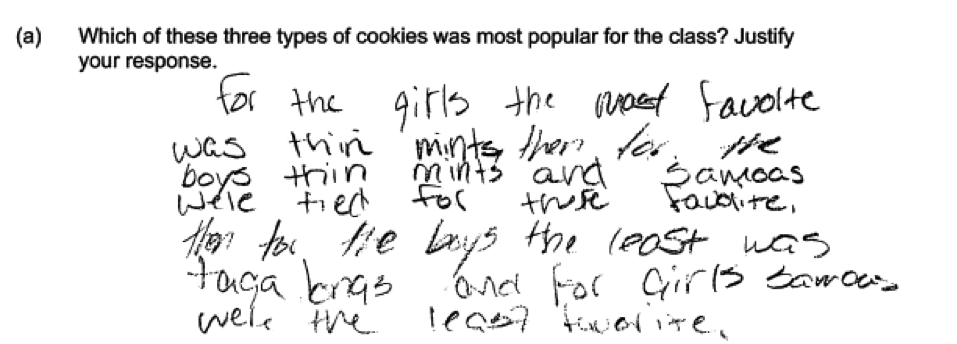 (a) Which of these three types of cookies was most popular for the class? Justify
your response.
for the girls the most favoite
was thin mints then for the
boys thin mints and Samoas
were tied for there favorite.
then for the boys the least was
taga longs and for Girls samoas
were the least favorite.